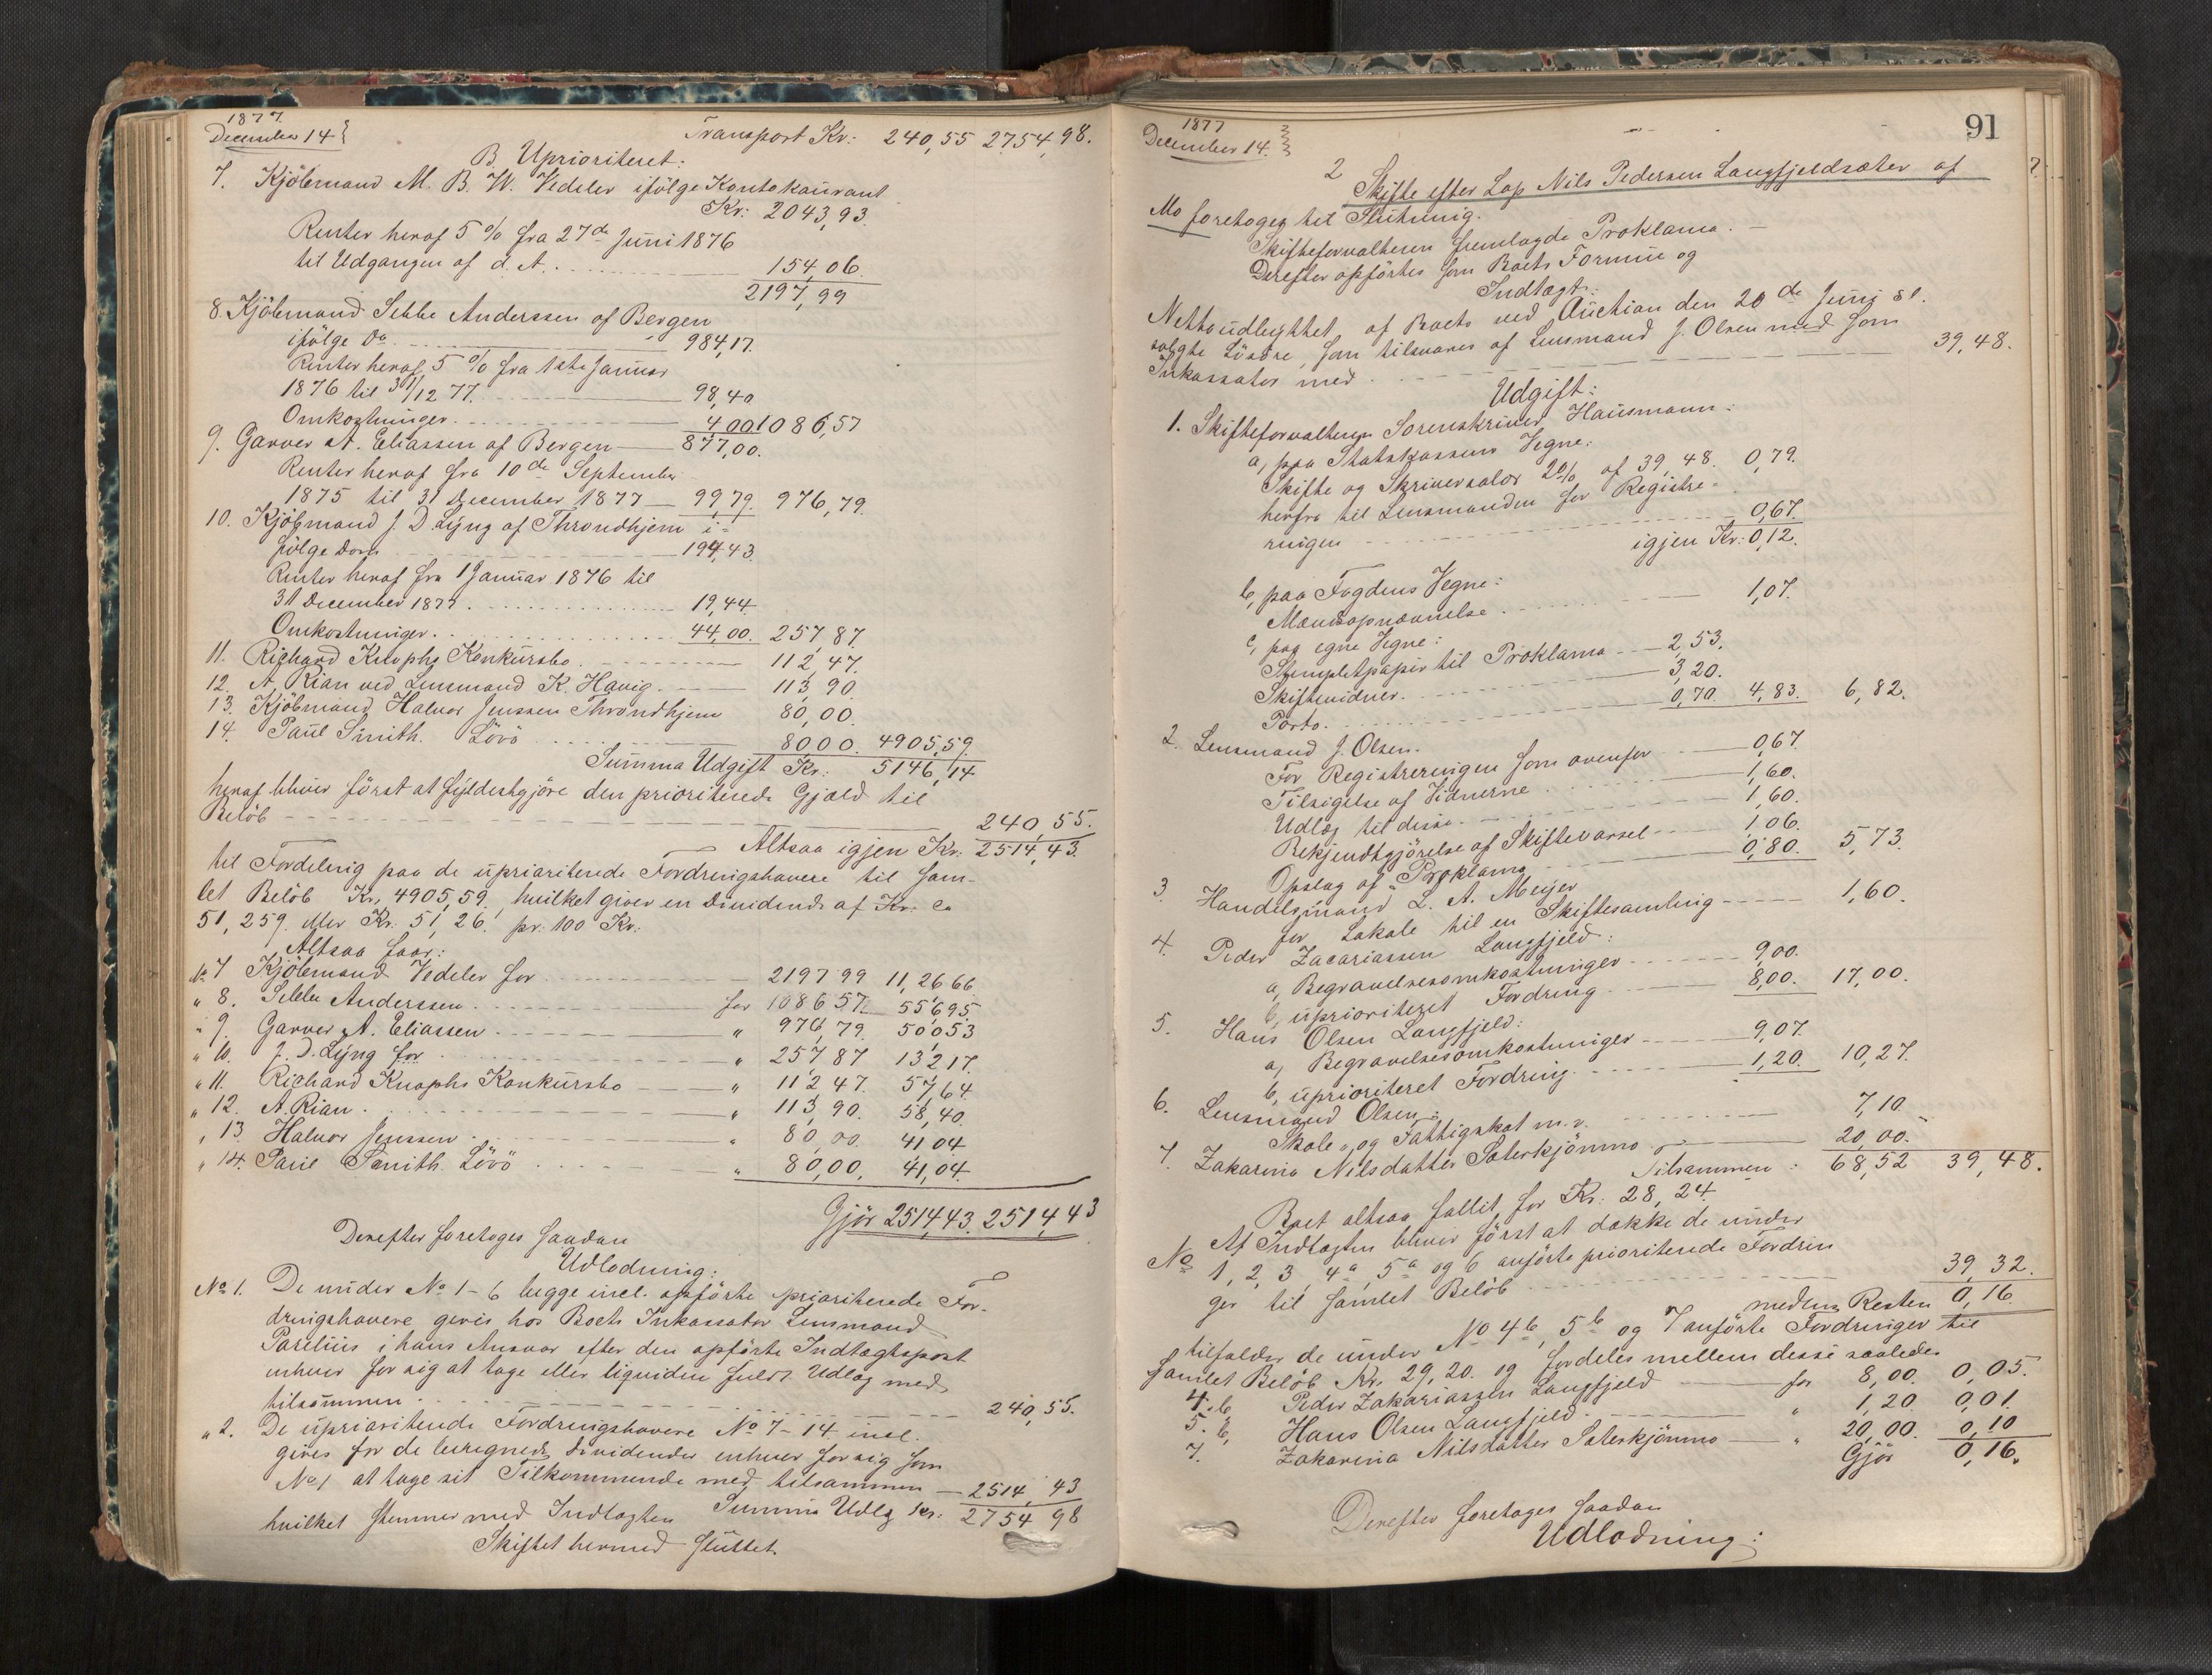 1877.
December 14
Transport Kr: 240,55 2754,98.
B. Uprioriteret:
7. Kjöbmand M. B. W. Vedeler ifölge Kontokourant
Kr: 2043,93.
Renter heraf 5 % fra 27de Juni 1876
til Udgangen af d. A. 154,06.
2197,99
8. Kjöbmand Sebbe Anderssen af Bergen
ifölge Do 984,17.
Renter heraf 5 % fra 1ste Januar
1876 til 31/12 77. 98,40
Omkostninger. 4 00 1086,57
9. Garver A. Eliassen af Bergen 877,00.
Renter heraf fra 10de September
1875 til 31 December 1877 99,79. 976,79.
10. Kjöbmand J. D. Lyng af Throndhjem i-
fölge Dom 194,43
Renter heraf fra 1 Januar 1876 til
31 December 1877. 19,44
Omkostninger. 44,00. 257,87.
11. Richard Knophs Konkursbo. 112,47.
12. A. Rian ved Lensmand K. Havig. 113,90.
13. Kjöbmand Halvor Jenssen Throndhjem 80,00.
14. Paul Smith. Lövö 80 00. 4905,59.
Summa Udgift Kr: 5146,14
heraf bliver först at fyldestgjöre den prioriterede Gjæld til
Belöb 240,55.
Altsaa igjen Kr: 2514,43.
til Fordeling paa de uprioriterede Fordringshavere til sam-
let Belöb Kr. 4905,59. hvilket giver en Dividende af Kr: ca
51,259. eller Kr. 51,26. pr. 100 Kr.
Altsaa faar:
No 7 Kjöbmand Vedeler for 2197 99 11,26 66
" 8. Sebbe Anderssen. for 1086 57. 556 95.
" 9. Garver A. Eliassen. " 976,79. 500 53
" 10. J. D. Lyng for " 257,87 132 17.
" 11. Richard Knophs Konkursbo " 112 47. 57,64
" 12. A. Rian. " 113,90. 58,40.
" 13. Halvor Jenssen. " 80,00. 41 04
" 14. Paul Smith. Lövö " 80,00. 41,04.
Gjör 2514,43. 2514,43
Derefter foretoges saadan
Udlodning:
No 1. De under No 1-6 begge incl. opförte prioriterede For-
dringshavere gives hos Boets Inkassator Lensmand
Parelius i hans Ansvar efter den opförte Indtægtspost
enhver for sig at tage eller liquidere fuldt Udlæg med
tilsammen 240,55.
" 2. De uprioriterede Fordringshavere No 7-14 incl.
gives for de beregnede Dividender enhver for sig som
No 1 at tage sit Tilkommende med tilsammen 2514,43
hvilket stemmer med Indtægten Summa Udlæg Kr: 2754 98
Skiftet hermed sluttet.
91
1877
December 14.
2
Skifte efter Lap Nils Pedersen Langfjeldsæter af
Mo foretoges til Slutning.
Skifteforvalteren fremlagde Proklama.
Derefter opförtes som Boets Formue og
Indtægt:
Nettoudbyttet af Boets ved Auction den 20de Juni sl.
solgte Lösöre, som tilsvares af Lensmand J. Olsen med som
Inkassator med 39,48.
Udgift:
1. Skifteforvalteren Sorenskriver Hausmann:
a, paa Statskassens Vegne:
Skifte og Skriversalær 2% af 39,48. 0,79.
herfra til Lensmanden for Registre-
ringen 0,67.
igjen Kr: 0,12.
b, paa Fogdens Vegne:
Mændsopnævnelse 1,07.
c, paa egne Vegne:
Stemplet papir til Proklama 2,53.
Skiftevidner. 3,20.
Porto. 0,70 4,83. 6,82.
2. Lensmand J. Olsen.
For Registreringen som ovenfor 0,67.
Tilsigelse af Vidnerne 1,60.
Udlæg til disse. 1,60.
Bekjendtgjörelse af Skiftevarsel 1 06.
Opslag af Proklama 0,80. 5,73.
3. Handelsmand L. A. Meyer
for Lokale til en Skiftesamling 1,60.
4. Peder Zacariassen Langfjeld:
a, Begravelsesomkostninger 9,00.
b, uprioriteret Fordring 8,00. 17,00.
5. Hans Olsen Langfjeld:
a, Begravelsesomkostninger 9,07.
b, uprioriteret Fordring. 1,20. 10,27.
6. Lensmand Olsen:
Skole- og Fattigskat m. v. 7,10
7. Zakarina Nilsdatter Saterkjönmo 20,00.
Tilsammen: 68,52 39,48.
Boet altsaa fallit for Kr: 28,24.
Af Indtægten bliver först at dække de under
No 1, 2, 3, 4a, 5a og 6 anförte prioriterede Fordrin
ger til samlet Belöb 39,32.
medens Resten 0,16
tilfalder de under No 4b, 5b og 7 anförte Fordringer til
samlet Belöb Kr. 29,20. og fordeles mellem disse saaledes
4. b Peder Zakariassen Langfjeld for 8,00. 0,05.
5. b, Hans Olsen Langfjeld. " 1,20. 0,01.
7. Zakarina Nilsdatter Saterkjönmo " 20,00. 0,10
Gjör 0,16.
Derefter foretoges saadan
Udlodning: